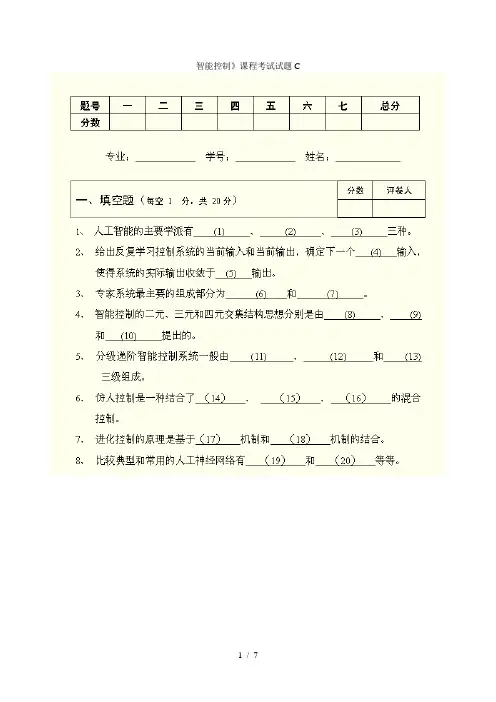 智能控制》课程考试试题C
题号 一 二 三 四 五 六 七 总分
分数
专业:____________ 学号:____________ 姓名:_____________
分数 评卷人
一、填空题(每空 1 分,共 20分)
1、 人工智能的主要学派有 (1) 、 (2) 、 (3) 三种。
2、 给出反复学习控制系统的当前输入和当前输出,确定下一个 (4) 输入,
使得系统的实际输出收敛于 (5) 输出。
3、 专家系统最主要的组成部分为 (6) 和 (7) 。
4、 智能控制的二元、三元和四元交集结构思想分别是由 (8) 、 (9)
和 (10) 提出的。
5、 分级递阶智能控制系统一般由 (11) 、 (12) 和 (13)
三级组成。
6、 仿人控制是一种结合了 (14) 、 (15) 、 (16) 的混合
控制。
7、 进化控制的原理是基于 (17) 机制和 (18) 机制的结合。
8、 比较典型和常用的人工神经网络有 (19) 和 (20) 等等。
1 / 7